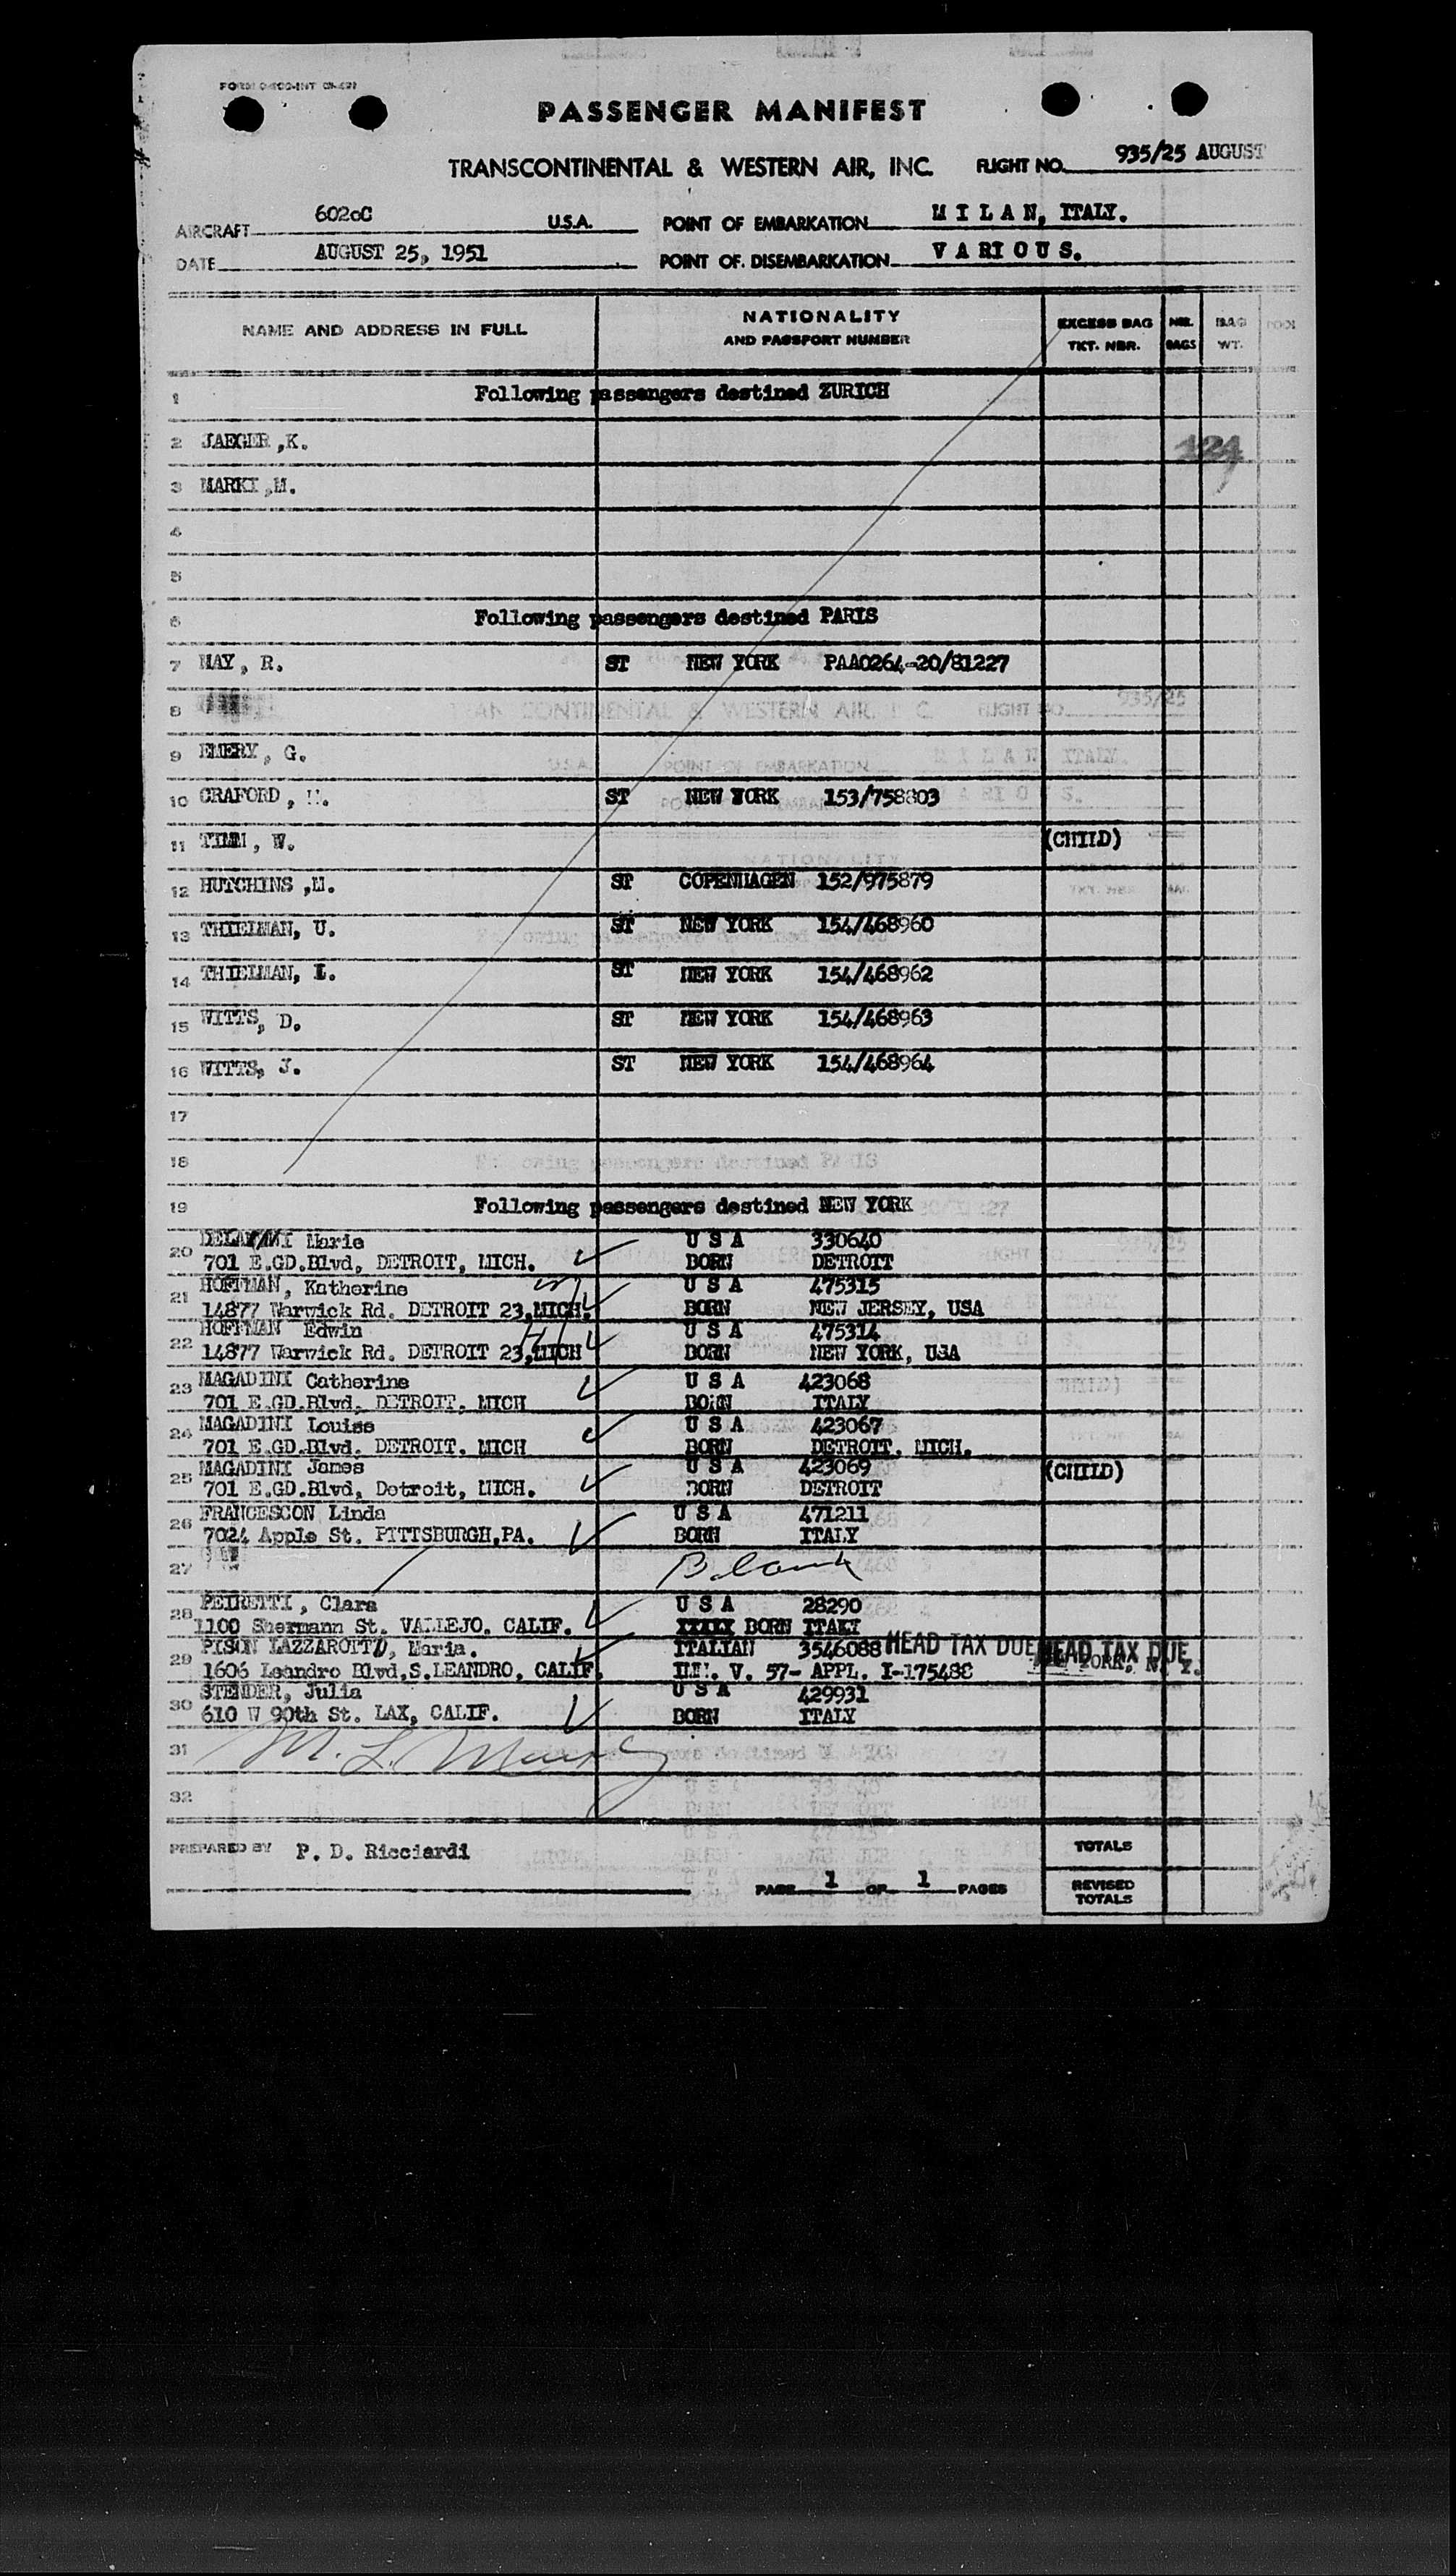 PASSENGER MANIFEST
TRANSCONTINENTAL & WESTERN AIR, INC. FLIGHT NO. 935/25 AUGUST
AIRCRAFT 6020C U.S.A. POINT OF EMBARKATION M I L A N, ITALY.
DATE AUGUST 25, 1951 POINT OF DISEMBARKATION V A R I O U S.
NAME AND ADDRESS IN FULL NATIONALITY AND PASSPORT NUMBER EXCESS BAG TKT. NBR. NBR. BAGS BAG WT.
1 Following passengers destined ZURICH
2 JAEGER ,K. 124
3 MARKI ,M.
4
5
6 Following passengers destined PARIS
7 MAY, R. ST NEW YORK PAA0264-20/81227
8
9 EMERY, G.
10 CRAFORD, M. ST NEW YORK 153/758803
11 TIMM, W. (CHILD)
12 HUTCHINS ,M. ST COPENHAGEN 152/975879
13 THIELMAN, U. ST NEW YORK 154/468960
14 THIELMAN, L. ST NEW YORK 154/468962
15 WITTS, D. ST NEW YORK 154/468963
16 WITTS, J. ST NEW YORK 154/468964
17
18
19 Following passengers destined NEW YORK
20 Marie U S A 330640
701 E.GD.Blvd, DETROIT, MICH. BORN DETROIT
21 HOFFMAN, Katherine U S A 475315
14877 Warwick Rd. DETROIT 23,MICH. BORN NEW JERSEY, USA
22 HOFFMAN Edwin U S A 475314
14877 Warwick Rd. DETROIT 23,MICH BORN NEW YORK, USA
23 MAGADINI Catherine U S A 423068
701 E.GD.Blvd. DETROIT, MICH BORN ITALY
24 MAGADINI Louise U S A 423067
701 E.GD.Blvd. DETROIT. MICH BORN DETROIT, MICH.
25 MAGADINI James U S A 423069 (CHILD)
701 E.GD.Blvd, Detroit, MICH. BORN DETROIT
26 FRANCESCON Linda U S A 471211
7024 Apple St. PITTSBURGH,PA. BORN ITALY
27 Blank
28 PEIRETTI, Clara U S A 28290
1100 Shermann St. VALLEJO. CALIF. BORN ITALY
29 PISON LAZZAROTTO, Maria. ITALIAN 3546088 HEAD TAX DUE HEAD TAX DUE
1606 Leandro Blvd,S.LEANDRO, CALIF. IM. V. 57- APPL. I-175488 YORK, N. Y.
30 STENDER, Julia U S A 429931
610 W 90th St. LAX, CALIF. BORN ITALY
31 M. L.
32
PREPARED BY P. D. Ricciardi TOTALS
PAGE 1 OF 1 PAGES REVISED TOTALS